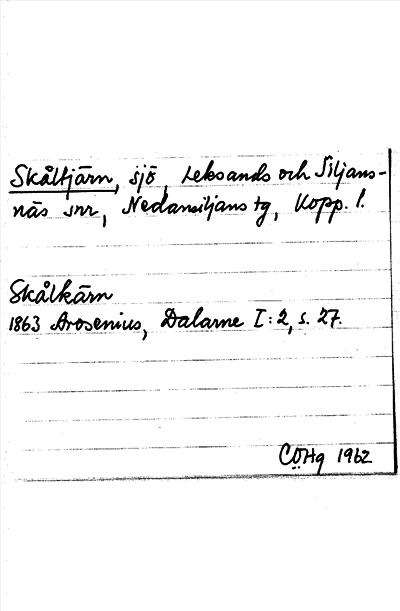 Skåltjärn, sjö, Leksands och Siljans-
näs snr, Nedansiljans tg, Kopp. l.
Skålkärn
1863 Arosenius, Dalarne I:2, s. 27.
CÖHg 1962